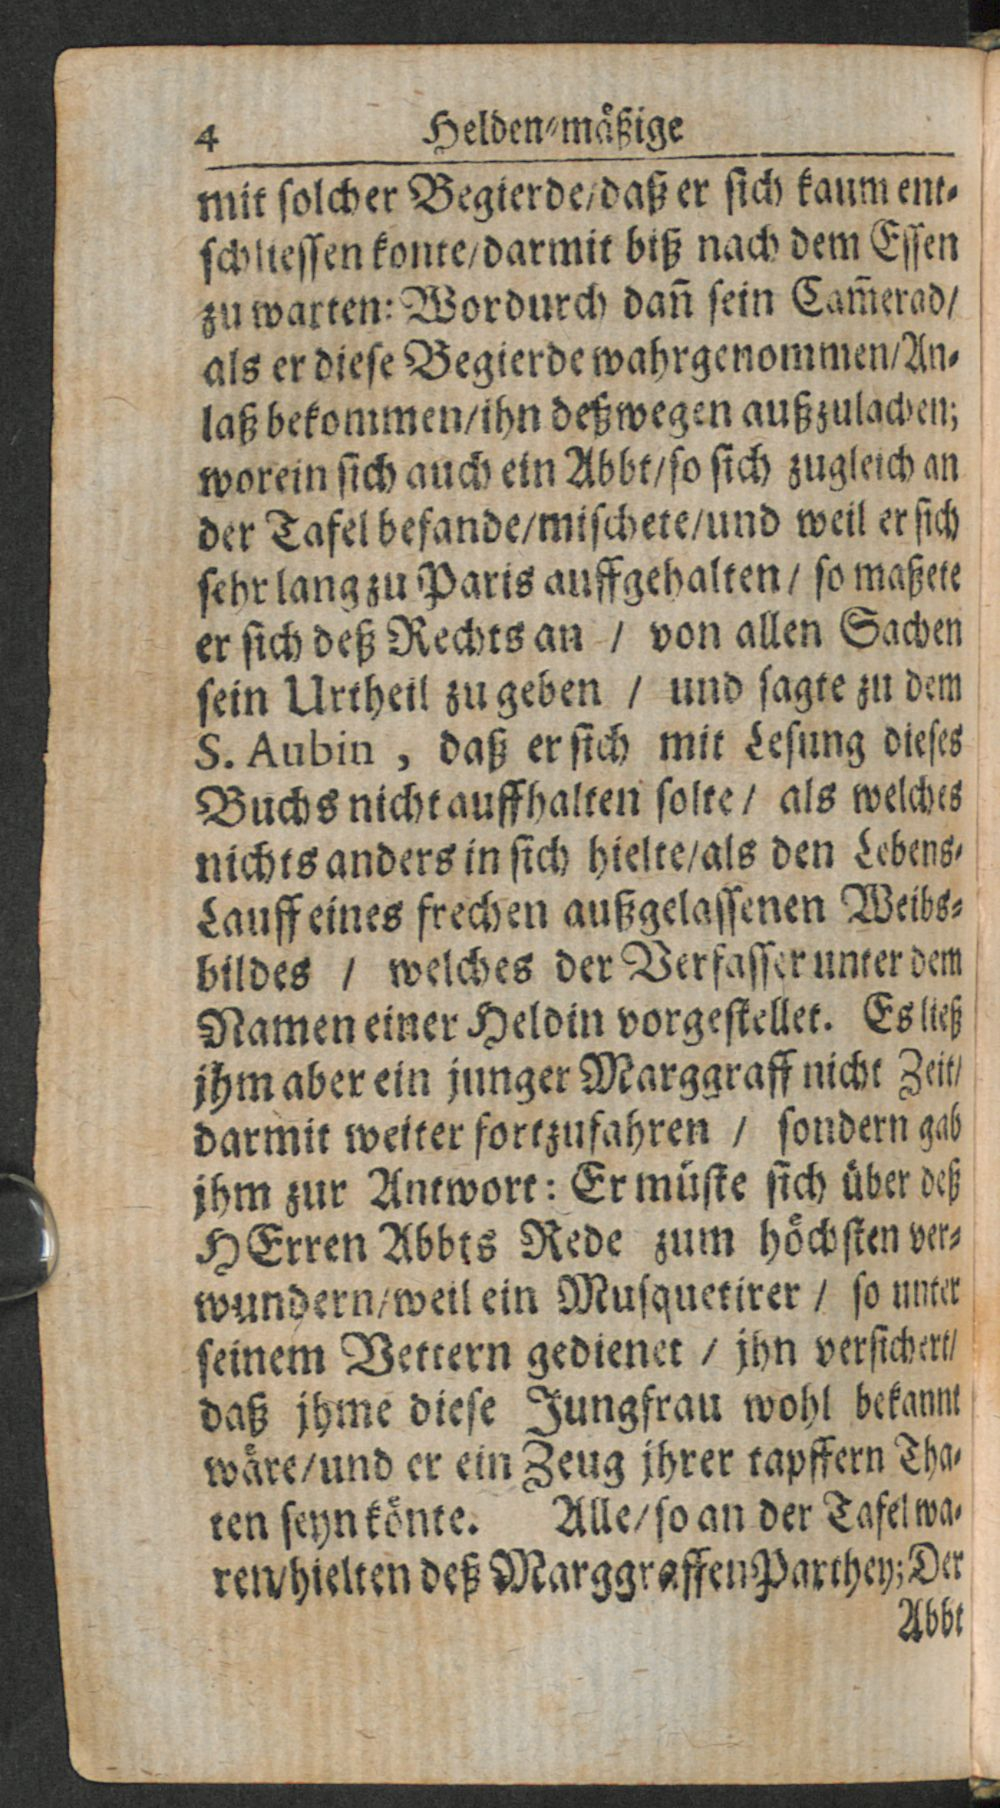 4 Helden-mäßige
mit solcher Begierde/daß er sich kaum ent-
schliessen konte/darmit biß nach dem Essen
zu warten: Wordurch dañ sein Cam̃erad/
als er diese Begierde wahrgenommen/An-
laß bekommen/ihn deßwegen außzulachen;
worein sich auch ein Abbt/so sich zugleich an
der Tafel befande/mischete/und weil er sich
sehr lang zu Paris auffgehalten/ so maßete
er sich deß Rechts an / von allen Sachen
sein Urtheil zu geben / und sagte zu dem
S. Aubin , daß er sich mit Lesung dieses
Buchs nicht auffhalten solte/ als welches
nichts anders in sich hielte/als den Lebens-
Lauff eines frechen außgelassenen Weibs-
bildes / welches der Verfasser unter dem
Namen einer Heldin vorgestellet. Es ließ
jhm aber ein junger Marggraff nicht Zeit/
darmit weiter fortzufahren / sondern gab
jhm zur Antwort: Er müste sich über deß
HErren Abbts Rede zum höchsten ver-
wundern/weil ein Musquetirer / so unter
seinem Vettern gedienet / jhn versichert/
daß jhme diese Jungfrau wohl bekannt
wäre/und er ein Zeug jhrer tapffern Tha-
ten seyn könte. Alle/so an der Tafel wa-
ren/hielten deß Marggraffen Parthey; Der
Abbt